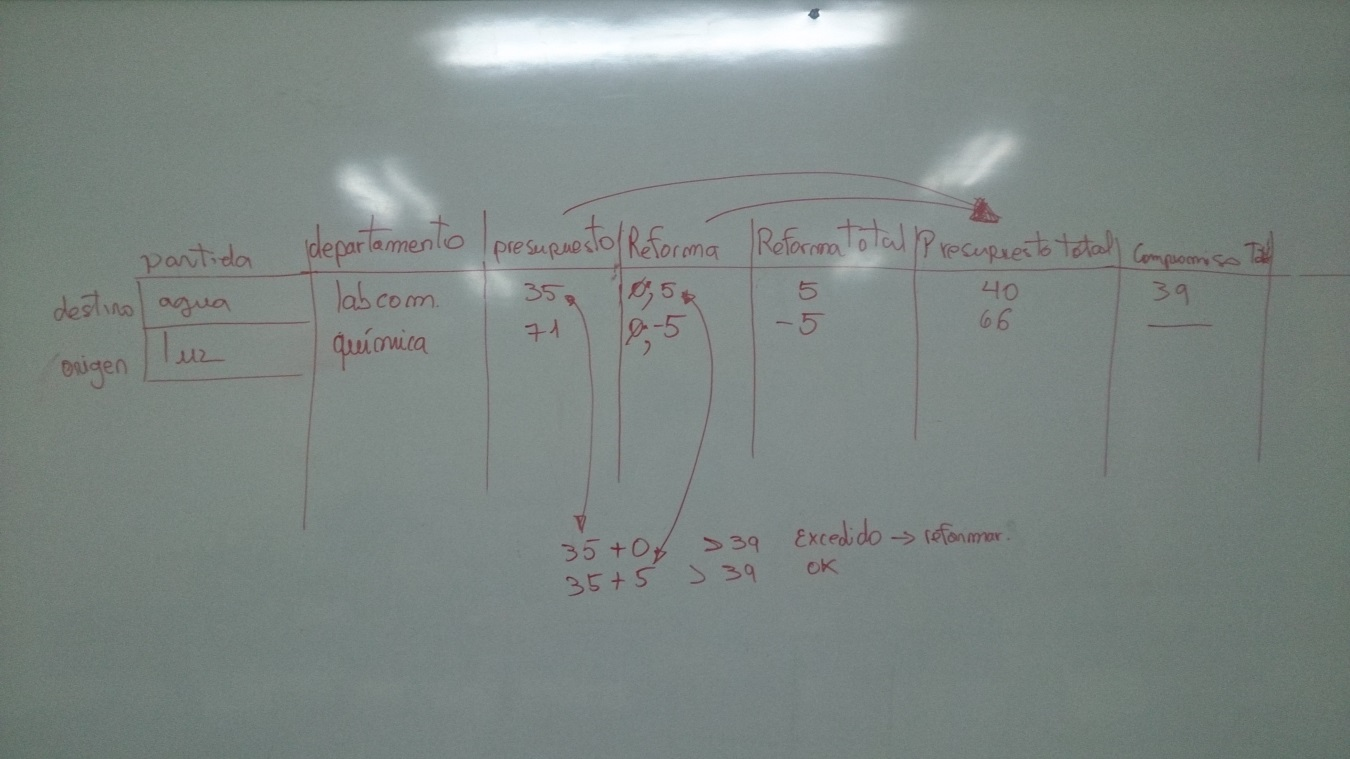 partida departamento presupuesto Reforma Reforma total Presupuesto total Compromiso Total
destino agua lab com. 35 0, 5 5 40 39
origen luz química 71 0, -5 -5 66 —
35 + 0 > 39 Excedido → reformar.
35 + 5 > 39 OK